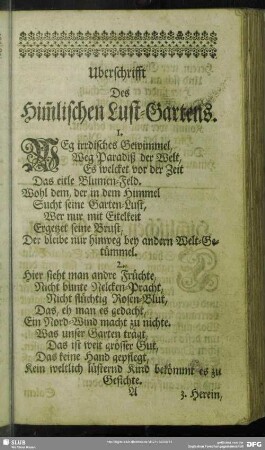 Uberschrifft
Des
Him̃lischen Lust-Gartens.
1.
WEg irrdisches Gewimmel,
Weg Paradiß der Welt,
Es welcket vor der Zeit
Das eitle Blumen-Feld.
Wohl dem, der in dem Himmel
Sucht seine Garten-Lust,
Wer nur mit Eitelkeit
Ergetzet seine Brust,
Der bleibe nur hinweg bey andern Welt-Ge-
tümmel.
2.
Hier sieht man andre Früchte,
Nicht bunte Nelcken-Pracht,
Nicht flüchtig Rosen-Blut,
Das, eh man es gedacht,
Ein Nord-Wind macht zu nichte.
Was unser Garten trägt,
Das ist weit grösser Gut,
Das keine Hand gepflegt,
Kein weltlich lüsternd Kind bekommt es zu
Gesichte.
A 3. Herein,
SLUB
DFG